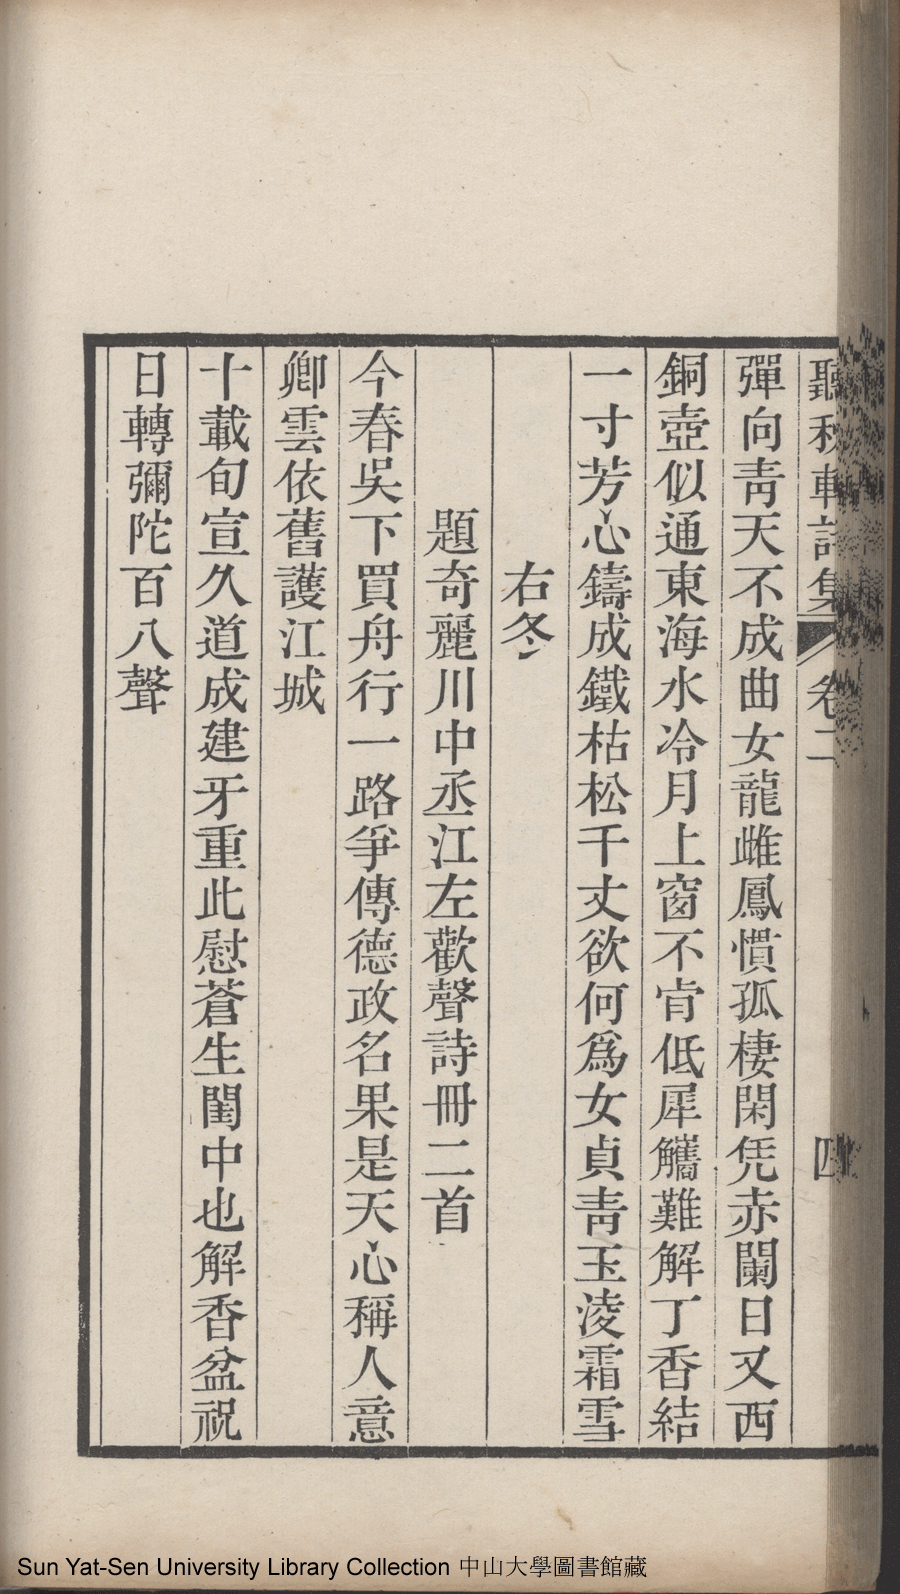 聽秋軒詩集 卷二 四
彈向靑天不成曲女龍雌鳳慣孤棲閑凭赤闌日又西
銅壺似通東海水冷月上窗不肯低犀觿難解丁香結
一寸芳心鑄成鐵枯松千丈欲何爲女貞靑玉淩霜雪
右冬
題奇麗川中丞江左歡聲詩冊二首
今春吳下買舟行一路爭傳德政名果是天心稱人意
卿雲依舊護江城
十載旬宣久道成建牙重此慰蒼生閨中也解香盆祝
日轉彌陀百八聲
Sun Yat-Sen University Library Collection 中山大學圖書館藏